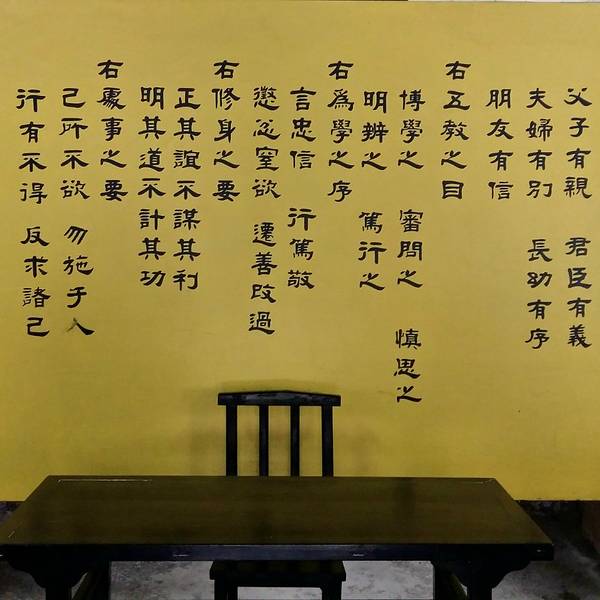 父子有親 君臣有義
夫婦有別 長幼有序
朋友有信
右五教之目
博學之 審問之 慎思之
明辨之 篤行之
右爲學之序
言忠信 行篤敬
懲忿窒欲 遷善改過
右修身之要
正其誼不謀其利
明其道不計其功
右處事之要
己所不欲 勿施于人
行有不得 反求諸己